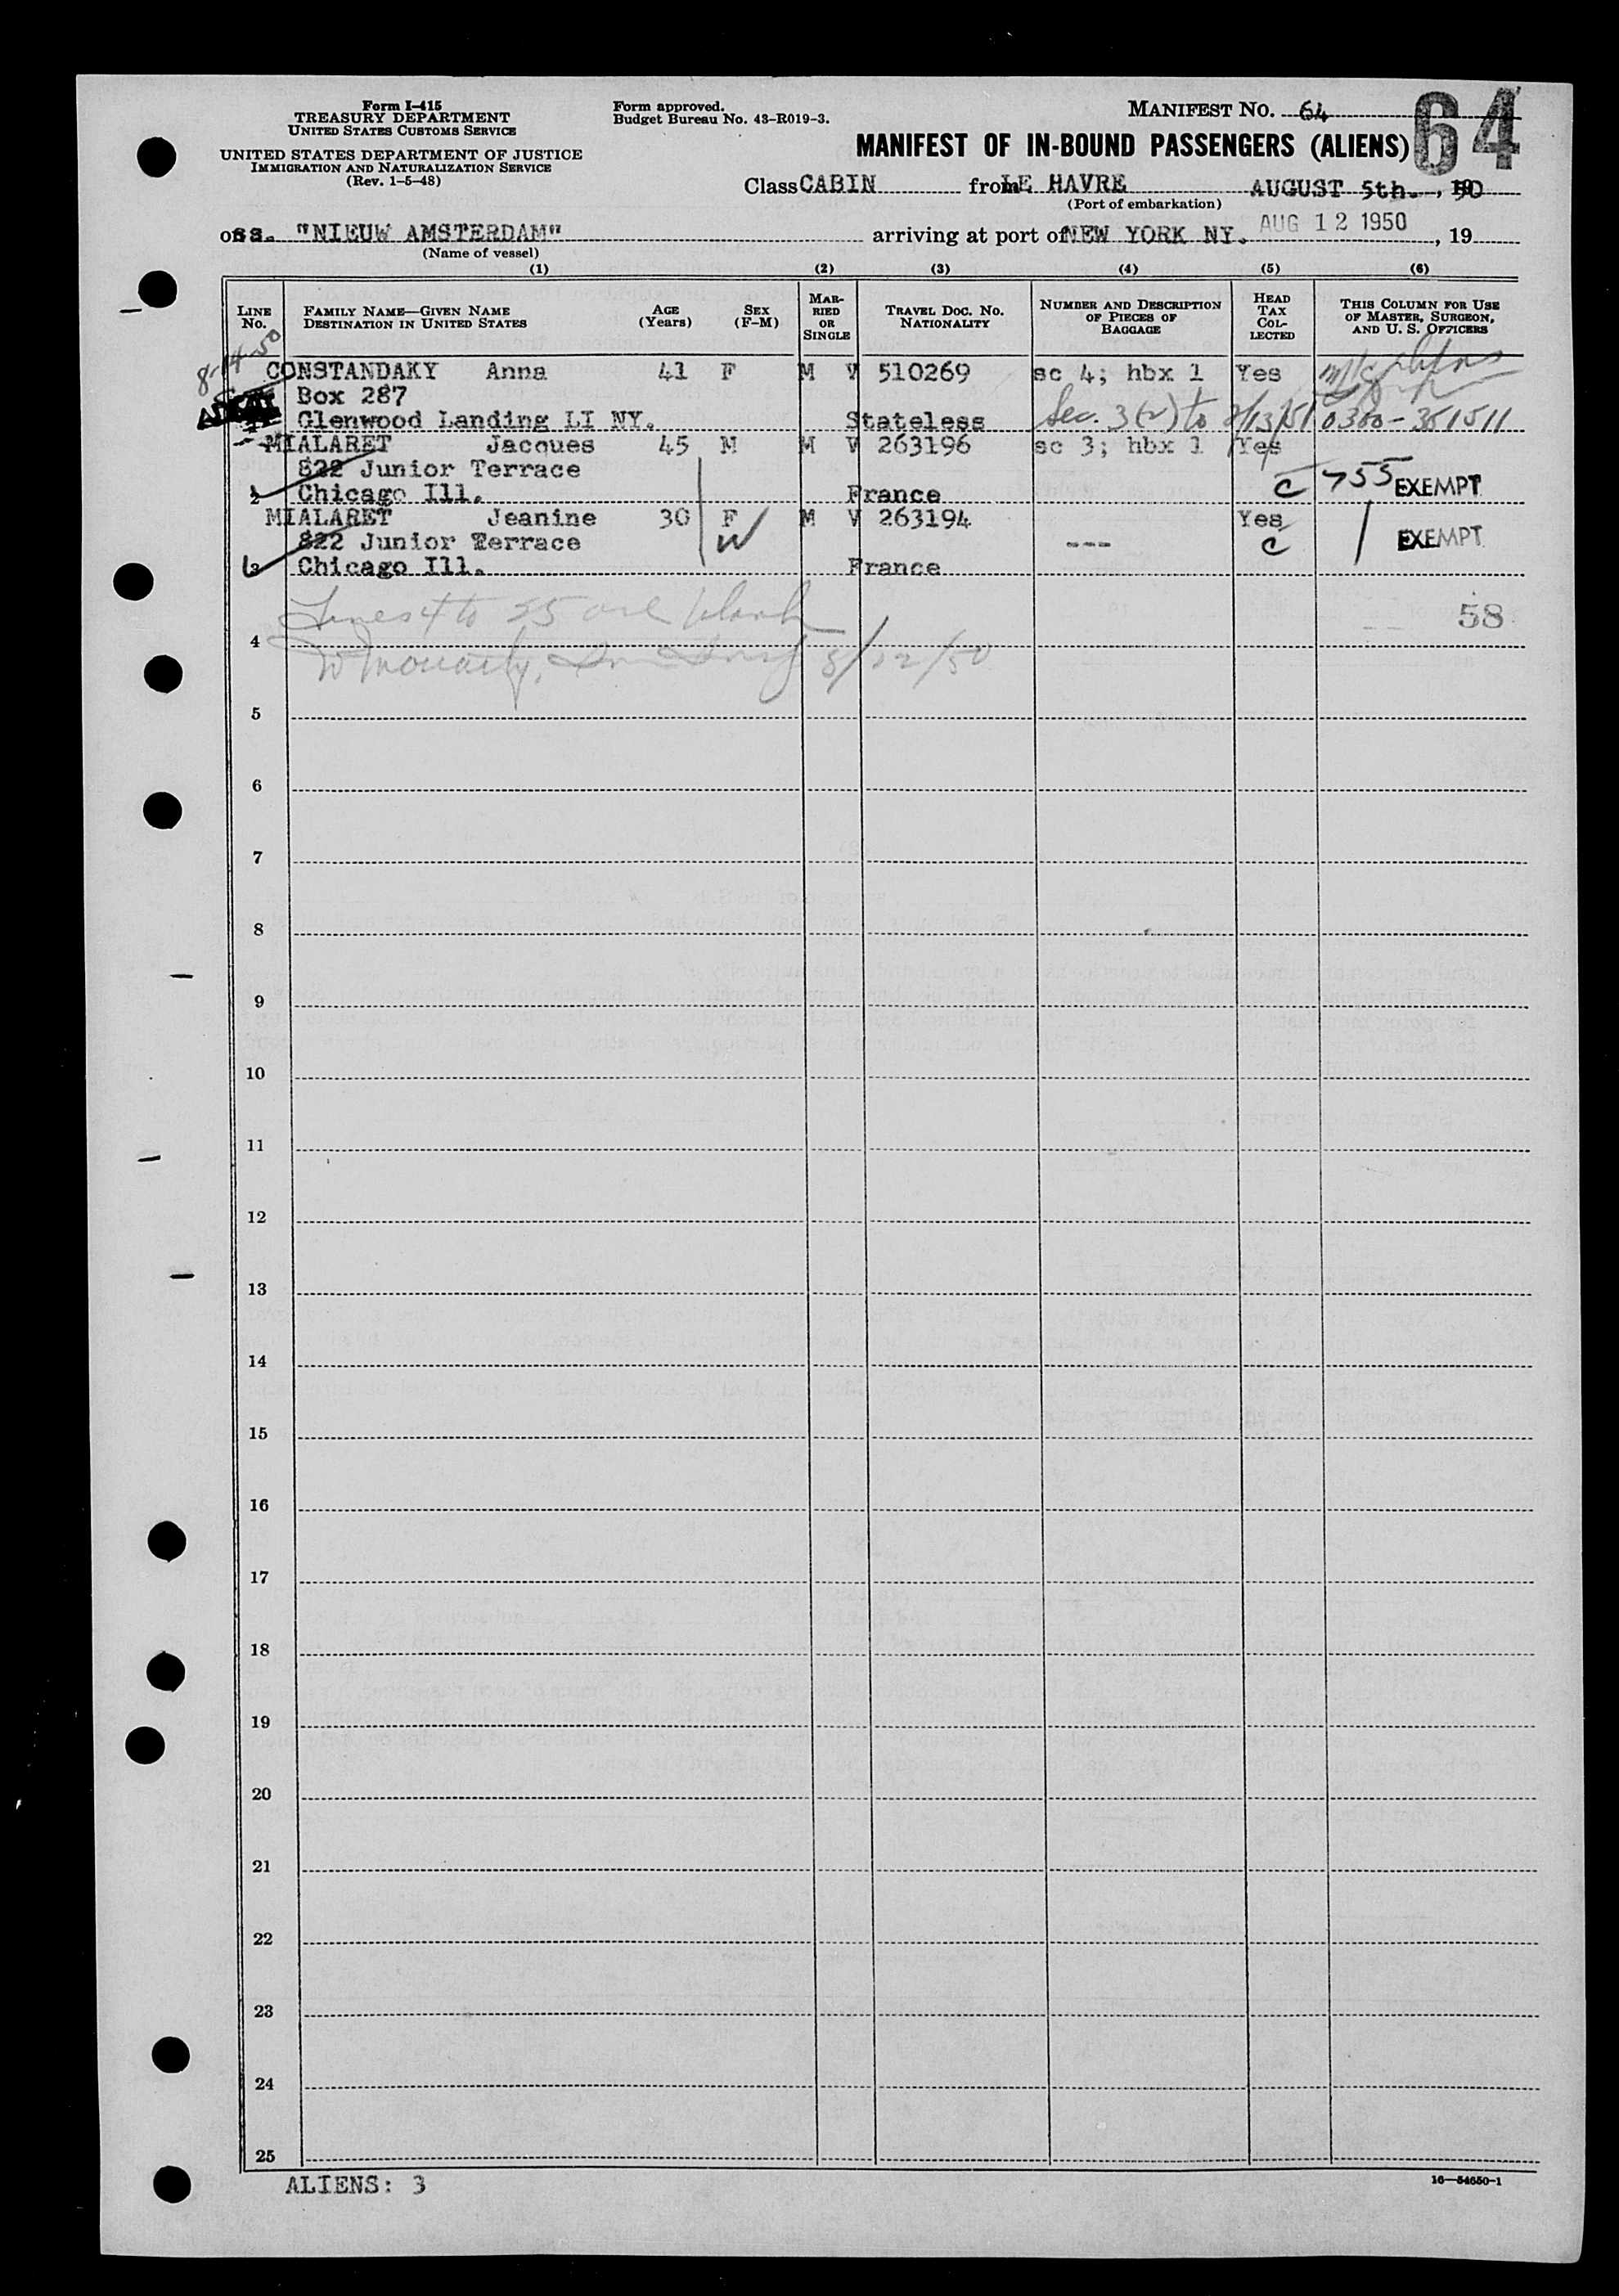 Form I-415
TREASURY DEPARTMENT
UNITED STATES CUSTOMS SERVICE
UNITED STATES DEPARTMENT OF JUSTICE
IMMIGRATION AND NATURALIZATION SERVICE
(Rev. 1-5-48)
Form approved.
Budget Bureau No. 43-R019-3.
MANIFEST NO. 64
64
MANIFEST OF IN-BOUND PASSENGERS (ALIENS)
Class CABIN from LE HAVRE AUGUST 5th. , 1950
(Port of embarkation)
on ss. "NIEUW AMSTERDAM" arriving at port of NEW YORK NY. AUG 12 1950 , 19
(Name of vessel)
(1) (2) (3) (4) (5) (6)
LINE NO. FAMILY NAME—GIVEN NAME DESTINATION IN UNITED STATES AGE (Years) SEX (F-M) MARRIED OR SINGLE TRAVEL DOC. NO. NATIONALITY NUMBER AND DESCRIPTION OF PIECES OF BAGGAGE HEAD TAX COLLECTED THIS COLUMN FOR USE OF MASTER, SURGEON, AND U. S. OFFICERS
8-14-50
CONSTANDAKY Anna 41 F M V 510269 sc 4; hbx 1 Yes
Box 287
Glenwood Landing LI NY. Stateless Sec. 3(2) to 2/13/51 0300-351511
MIALARET Jacques 45 M M V 263196 sc 3; hbx 1 Yes
822 Junior Terrace
2 Chicago Ill. France C 755 EXEMPT
MIALARET Jeanine 30 F M V 263194 Yes
822 Junior Terrace W --- C EXEMPT
3 Chicago Ill. France
Lines 4 to 25 are blank 58
4
8/22/50
5
6
7
8
9
10
11
12
13
14
15
16
17
18
19
20
21
22
23
24
25
ALIENS: 3
16—54650-1